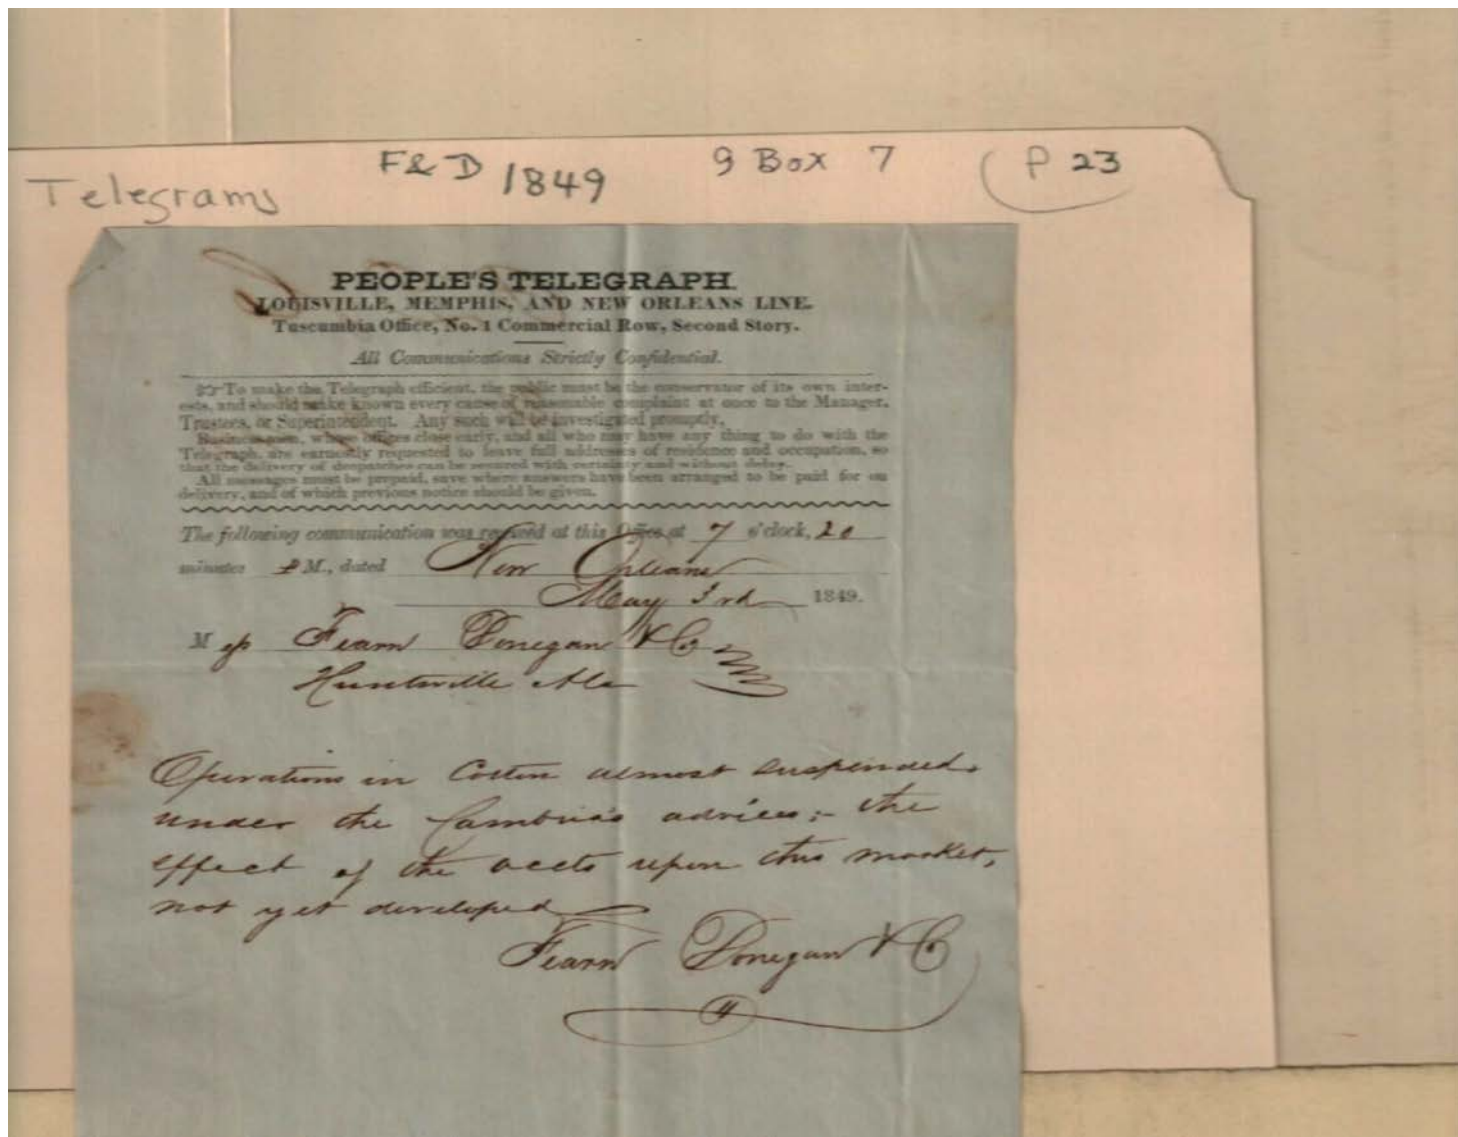 Telegrams F&D 1849 9 Box 7 P 23
PEOPLE'S TELEGRAPH.
LOUISVILLE, MEMPHIS, AND NEW ORLEANS LINE.
Tuscumbia Office, No. 1 Commercial Row, Second Story.
All Communications Strictly Confidential.
☞ To make the Telegraph efficient, the public must be the conservator of its own inter-
ests, and should make known every cause of reasonable complaint at once to the Manager,
Trustees, or Superintendent. Any such will be investigated promptly.
Business men, whose offices close early, and all who may have any thing to do with the
Telegraph, are earnestly requested to leave full address of residence and occupation, so
that the delivery of despatches can be secured with certainty and without delay.
All messages must be prepaid, save where answers have been arranged to be paid for on
delivery, and of which previous notice should be given.
The following communication was received at this Office at 7 o'clock, 20
minutes P M., dated New Orleans
May 3rd 1849.
M Fearn Donegan & Co
Huntsville Ala
Operations in Cotton almost suspended
under the Cambria's advices;- the
effect of the accts upon this market,
not yet developed
Fearn Donegan & Co